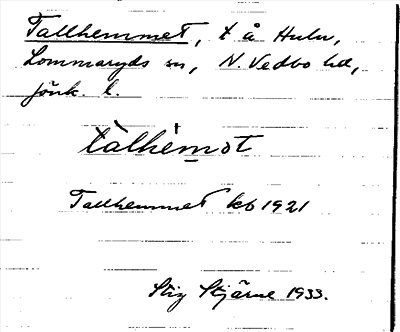 Tallhemmet, t å Hulu,
Lommaryds sn, N. Vedbo hd,
Jönk. l.
tàlhémot
Tallhemmet kb 1921
Stig Stjärne 1933.